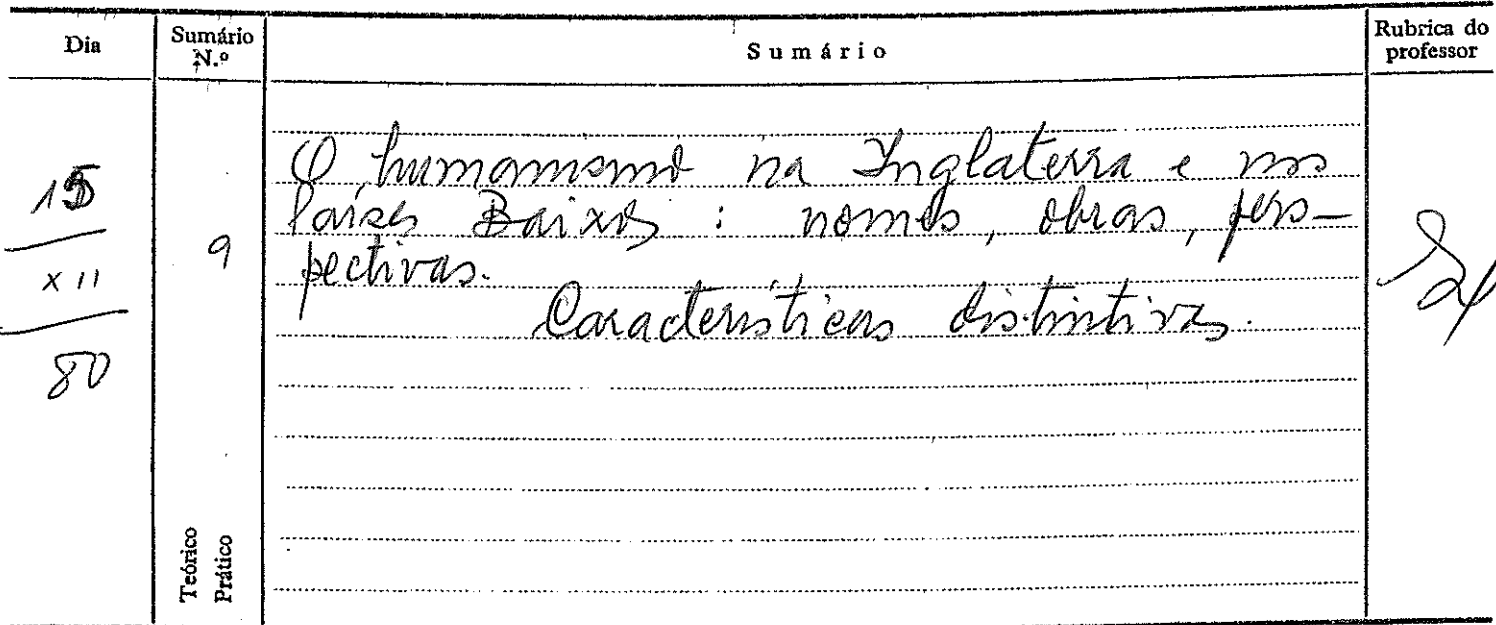 Dia
Sumário N.º
Sumário
Rubrica do professor
15
XII
80
9
O humanismo na Inglaterra e nos
Países Baixos : nomes, obras, pers-
pectivas.
Características distintivas.
Teórico
Prático